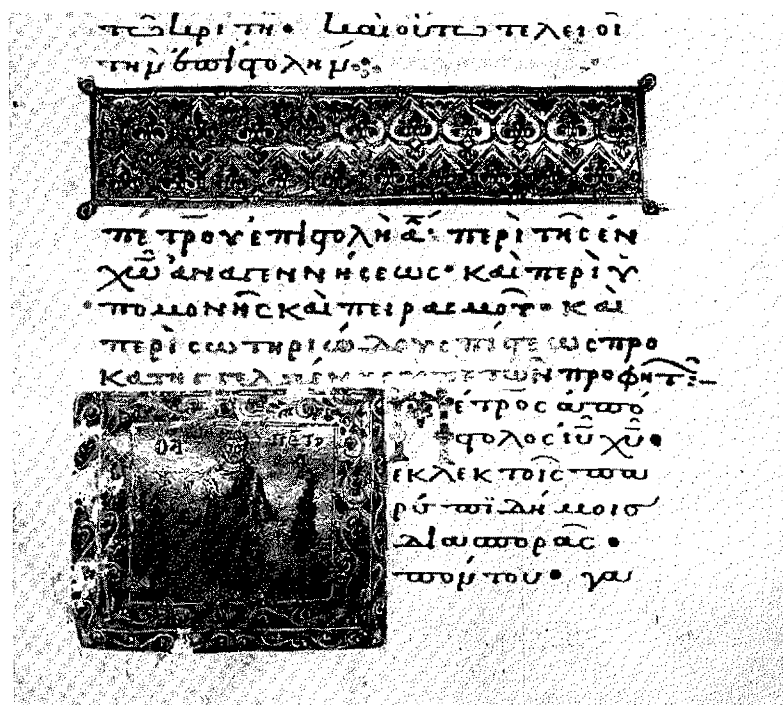 τω κριτῆ· καὶ οὕτω τελειοῖ
τὴν ἐπιστολήν·
πέτρου ἐπιστολὴ ᾱ· περὶ τῆς ἐν
χω̅ ἀναγεννήσεως· καὶ περὶ ὑ
πομονῆς καὶ πειρασμοῦ· καὶ
περὶ σωτηριώδους πίστεως προ
τῶν προφητῶ
πέτρος ἀπό
στολος ιυ̅ χυ̅·
ἐκλεκτοῖς πα
ρεπιδήμοις
διασπορᾶς·
πόντου· γα
ΠΕΤΡ